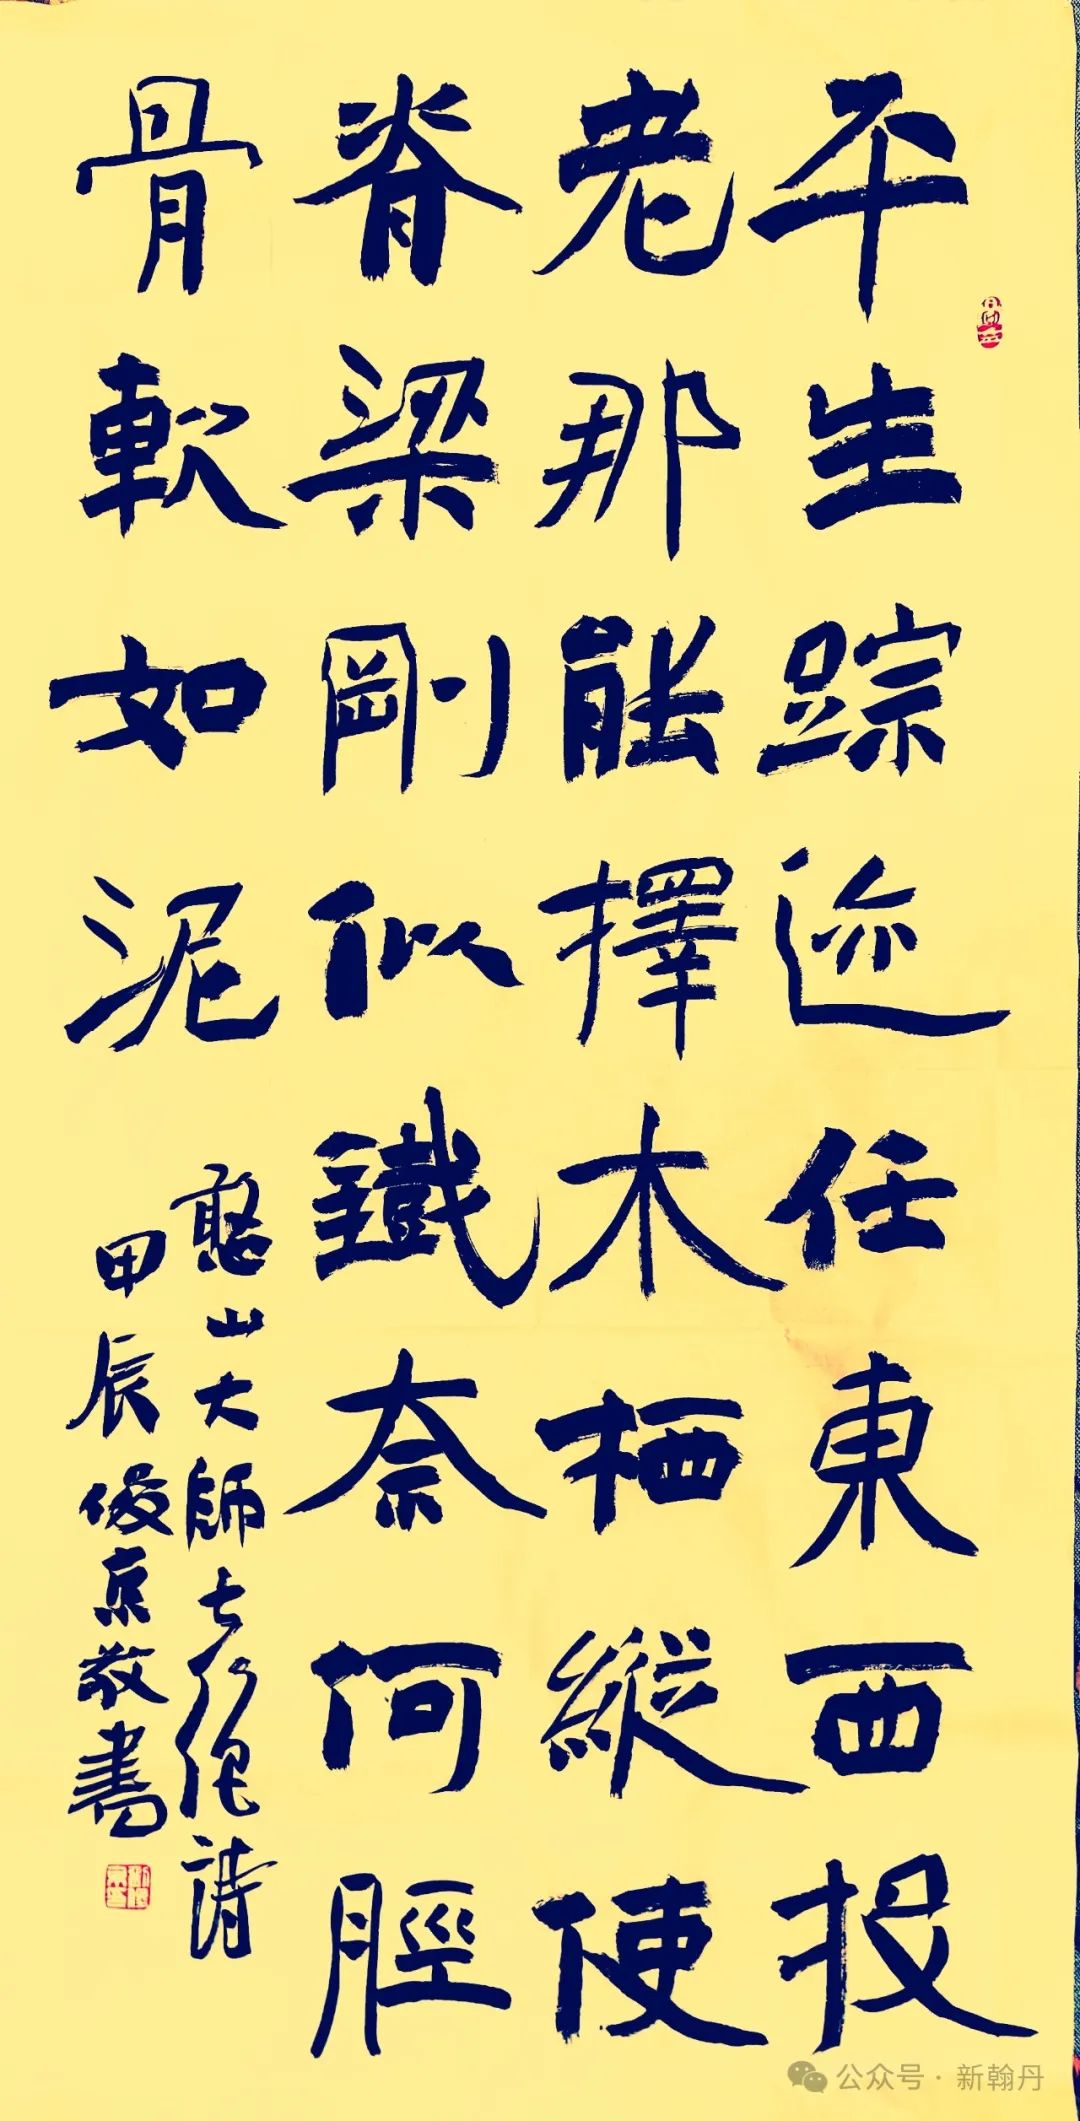 平生踪迹任東西投
老那能擇木栖縱使
脊梁剛似鐵奈何脛
骨軟如泥
憨山大師七絕詩
甲辰俊京敬書
公众号·新翰丹